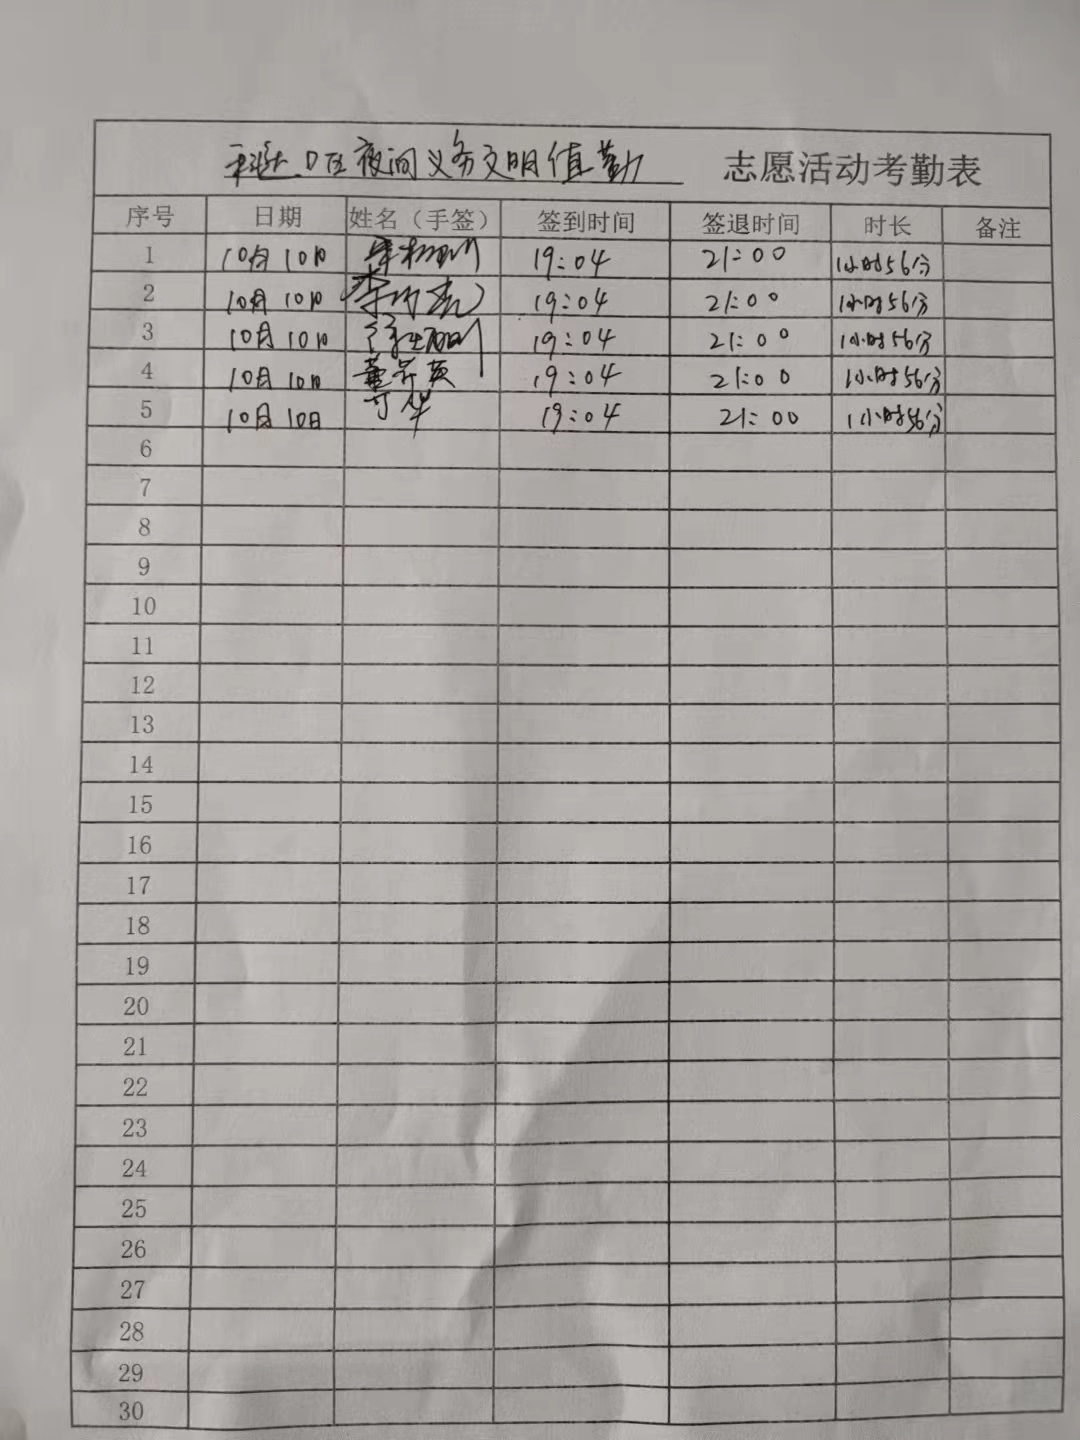 D区夜间义务文明值勤 志愿活动考勤表
序号 日期 姓名（手签） 签到时间 签退时间 时长 备注
1 10月10日 19:04 21:00 1小时56分
2 10月10日 19:04 21:00 1小时56分
3 10月10日 19:04 21:00 1小时56分
4 10月10日 19:04 21:00 1小时56分
5 10月10日 19:04 21:00 1小时56分
6
7
8
9
10
11
12
13
14
15
16
17
18
19
20
21
22
23
24
25
26
27
28
29
30